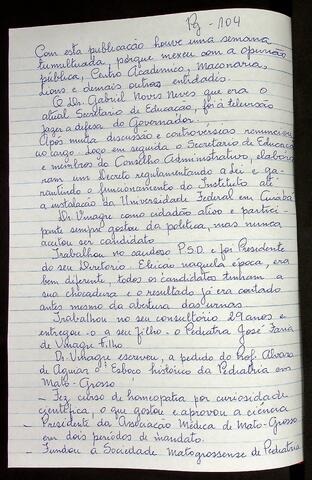 Pg - 104
Com esta publicação houve uma semana
tumultuada, porque mexeu com a opinião
pública, Centro Academico, Maçonaria,
Lions e demais outras entidades.
O Dr. Gabriel Novis Neves que era o
atual Secretario de Educação, foi à televisão
fazer a defesa do Governador.
Após muita discussão e controversias renunciou
ao cargo. Logo em seguida o Secretario de Educação
e membros do Conselho Administrativo, elabora-
ram um Decreto regulamentando a Lei e ga-
rantindo o funcionamento do Instituto até
a instalação da Universidade Federal em Cuiabá
Dr. Vinagre como cidadão ativo e partici-
pante sempre gostou da politica, mas nunca
aceitou ser candidato.
Trabalhou no saudoso P.S.D. e foi Presidente
do seu Diretorio. Eleição naquela época, era
bem diferente, todos os candidatos tinham a
sua chocadura e o resultado já era contado
antes mesmo da abertura das urnas.
Trabalhou no seu consultorio 29 anos e
entregou-o a seu filho - o Pediatra José Faria
de Vinagre Filho
Dr. Vinagre escreveu, a pedido do Prof. Alvaro
de Aguiar o "Esboço histórico da Pediatria em
Mato-Grosso
- Fez curso de homeopatia por curiosidade
cientifica, o que gostou e aprovou a ciência
- Presidente da Associação Médica de Mato-Grosso
em dois periodos de mandato.
- Fundou a Sociedade Matogrossense de Pediatria